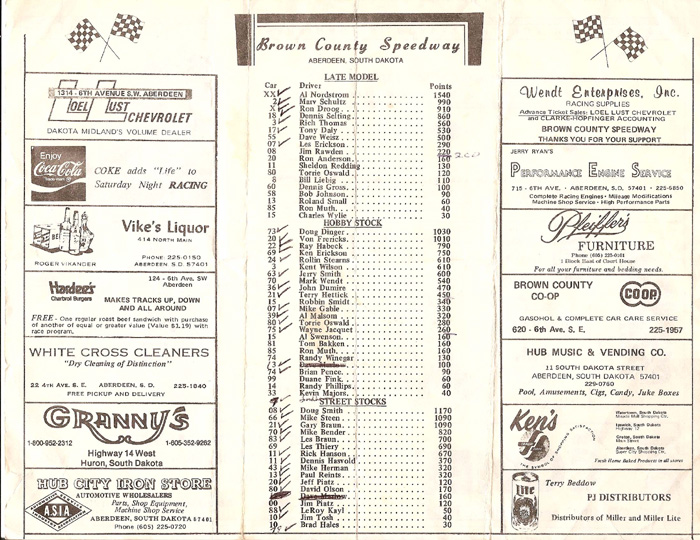 1314 - 6TH AVENUE S.W. ABERDEEN
JOEL LUST
CHEVROLET
DAKOTA MIDLAND'S VOLUME DEALER
Enjoy
Coca-Cola
COKE adds "Life" to
Saturday Night RACING
Vike's Liquor
414 NORTH MAIN
PHONE: 225-0150
ABERDEEN S.D. 57401
ROGER VIKANDER
Hardee's
Charbroil Burgers
124 - 6th Ave. SW
Aberdeen
MAKES TRACKS UP, DOWN
AND ALL AROUND
FREE - One regular roast beef sandwich with purchase
of another of equal or greater value (Value $1.19) with
race program.
WHITE CROSS CLEANERS
"Dry Cleaning of Distinction"
22 4TH AVE. S. E. ABERDEEN, S.D. 225-1840
FREE PICKUP AND DELIVERY
GRANNY'S
1-800-952-2312 1-605-352-9262
Highway 14 West
Huron, South Dakota
HUB CITY IRON STORE
AUTOMOTIVE WHOLESALERS
Parts, Shop Equipment,
Machine Shop Service
ABERDEEN, SOUTH DAKOTA 57401
Phone (605) 225-0720
ASIA
Brown County Speedway
ABERDEEN, SOUTH DAKOTA
LATE MODEL
Car Driver Points
XX Al Nordstrom 1540
2 Marv Schultz 990
X Ron Droog 910
18 Dennis Selting 860
3 Rich Thomas 560
17 Tony Daly 530
55 Dave Weisz 500
07 Les Erickson 290
08 Jim Rawden 220
20 Ron Anderson 160
11 Sheldon Redding 130
80 Torrie Oswald 120
8 Bill Liebig 110
60 Dennis Gross 100
58 Bob Johnson 90
13 Roland Small 60
85 Ron Muth 40
15 Charles Wylie 30
HOBBY STOCK
73 Doug Dinger 1030
20 Von Frericks 1010
22 Ray Habeck 790
69 Ken Erickson 750
24 Rollin Sterns 610
3 Kent Wilson 610
63 Jerry Smith 600
70 Mark Wendt 540
36 John Dumire 470
21 Terry Hettick 450
15 Robbin Smidt 340
07 Mike Gable 330
39 Al Malsom 320
80 Torrie Oswald 280
75 Wayne Jacquet 260
15 Al Swenson 160
81 Tom Bakken 160
85 Ron Muth 160
74 Randy Winegar 130
100
74 Brian Pence 90
99 Duane Fink 60
14 Randy Phillips 60
33 Kevin Majors 40
STREET STOCKS
08 Doug Smith 1170
66 Mike Steen 1090
21 Gary Braun 1090
70 Mike Bender 320
83 Les Braun 700
69 Les Thiery 690
11 Rick Hanson 670
11 Dennis Hasvold 370
43 Mike Herman 320
13 Paul Reints 320
20 Jeff Piatz 120
80 David Olson 170
160
00 Jim Piatz 120
88 LeRoy Kayl 50
10 Jim Tosh 40
10 Brad Hales 30
Wendt Enterprises, Inc.
RACING SUPPLIES
Advance Ticket Sales: LOEL LUST CHEVROLET
and CLARKE-HOPFINGER ACCOUNTING
BROWN COUNTY SPEEDWAY
THANKS YOU FOR YOUR SUPPORT
JERRY RYAN'S
PERFORMANCE ENGINE SERVICE
715 - 6TH AVE. • ABERDEEN, S.D. 57401 • 225-6850
Complete Racing Engines • Mileage Modifications
Machine Shop Service • High Performance Parts
Pfeiffer's
FURNITURE
Phone (605) 225-0161
1 Block East of Court House
For all your furniture and bedding needs.
BROWN COUNTY
CO-OP
COOP
GASOHOL & COMPLETE CAR CARE SERVICE
620 - 6th Ave. S. E. 225-1957
HUB MUSIC & VENDING CO.
11 SOUTH DAKOTA STREET
ABERDEEN, SOUTH DAKOTA 57401
229-0760
Pool, Amusements, Cigt, Candy, Juke Boxes
Ken's
THE SYMBOL OF SHOPPING SATISFACTION
Ipswich, South Dakota
Highway 12
Groton, South Dakota
Main Street
Aberdeen, South Dakota
Super City Shopping Ctr.
Fresh Home Baked Products in all stores
Lite
Terry Beddow
PJ DISTRIBUTORS
Distributors of Miller and Miller Lite